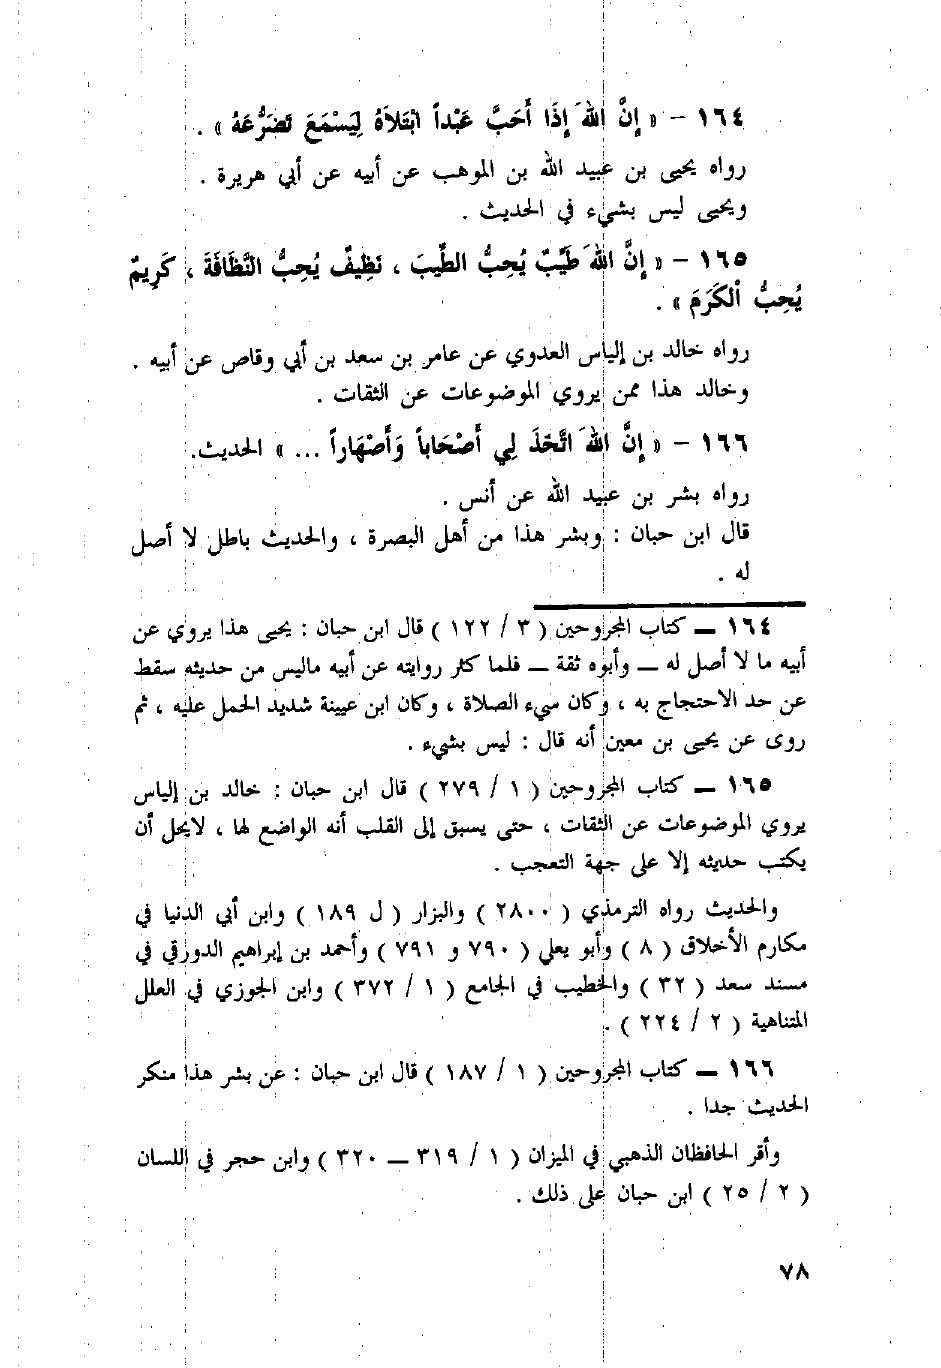 ١٦٤ - « إِنَّ اللهَ إِذَا أَحَبَّ عَبْداً ابْتَلاَهُ لِيَسْمَعَ تَضَرُّعَهُ » .
رواه يحيى بن عبيد الله بن الموهب عن أبيه عن أبي هريرة .
ويحيى ليس بشيء في الحديث .
١٦٥ - « إِنَّ اللهَ طَيِّبٌ يُحِبُّ الطِّيبَ ، نَظِيفٌ يُحِبُّ النَّظَافَةَ ، كَرِيمٌ
يُحِبُّ الْكَرَمَ » .
رواه خالد بن إلياس العدوي عن عامر بن سعد بن أبي وقاص عن أبيه .
وخالد هذا ممن يروي الموضوعات عن الثقات .
١٦٦ - « إِنَّ اللهَ اتَّخَذَ لِي أَصْحَاباً وَأَصْهَاراً ... » الحديث.
رواه بشر بن عبيد الله عن أنس .
قال ابن حبان : وبشر هذا من أهل البصرة ، والحديث باطل لا أصل
له .
١٦٤ ــ كتاب المجروحين ( ٣ / ١٢٢ ) قال ابن حبان : يحيى هذا يروي عن
أبيه ما لا أصل له ــ وأبوه ثقة ــ فلما كثر روايته عن أبيه ماليس من حديثه سقط
عن حد الاحتجاج به ، وكان سيء الصلاة ، وكان ابن عيينة شديد الحمل عليه ، ثم
روى عن يحيى بن معين أنه قال : ليس بشيء .
١٦٥ ــ كتاب المجروحين ( ١ / ٢٧٩ ) قال ابن حبان : خالد بن إلياس
يروي الموضوعات عن الثقات ، حتى يسبق إلى القلب أنه الواضع لها ، لايحل أن
يكتب حديثه إلا على جهة التعجب .
والحديث رواه الترمذي ( ٢٨٠٠ ) والبزار ( ل ١٨٩ ) وابن أبي الدنيا في
مكارم الأخلاق ( ٨ ) وأبو يعلي ( ٧٩٠ و ٧٩١ ) وأحمد بن إبراهيم الدورقي في
مسند سعد ( ٣٢ ) والخطيب في الجامع ( ١ / ٣٧٢ ) وابن الجوزي في العلل
المتناهية ( ٢ / ٢٢٤ ) .
١٦٦ ــ كتاب المجروحين ( ١ / ١٨٧ ) قال ابن حبان : عن بشر هذا منكر
الحديث جدا .
وأقر الحافظان الذهبي في الميزان ( ١ / ٣١٩ ــ ٣٢٠ ) وابن حجر في اللسان
( ٢ / ٢٥ ) ابن حبان على ذلك .
٧٨